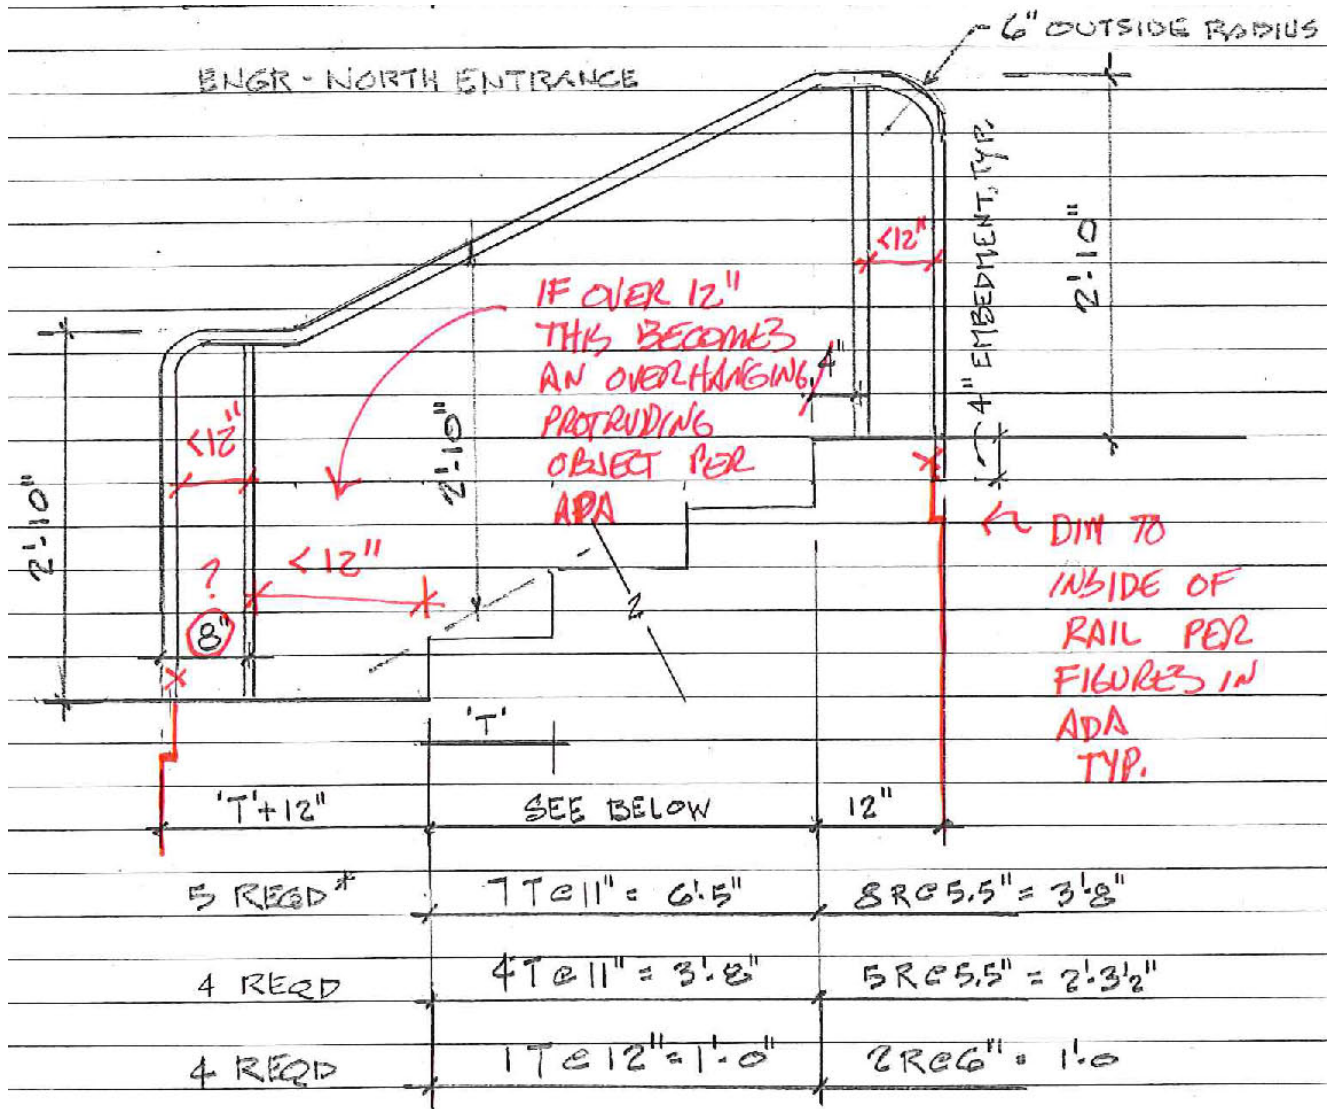 6" OUTSIDE RADIUS
ENGR - NORTH ENTRANCE
4" EMBEDMENT, TYP.
2'-10"
<12"
IF OVER 12"
THIS BECOMES
AN OVERHANGING
PROTRUDING
OBJECT PER
ADA
4"
<12"
2'-10"
2'-10"
?
8"
<12"
2
DIM TO
INSIDE OF
RAIL PER
FIGURES IN
ADA
TYP.
'T'
'T'+12"
SEE BELOW
12"
5 REQD* 7T@11" = 6'-5" 8R@5.5" = 3'-8"
4 REQD 4T@11" = 3'-8" 5R@5.5" = 2'-3½"
4 REQD 1T@12" = 1'-0" 2R@6" = 1'-0